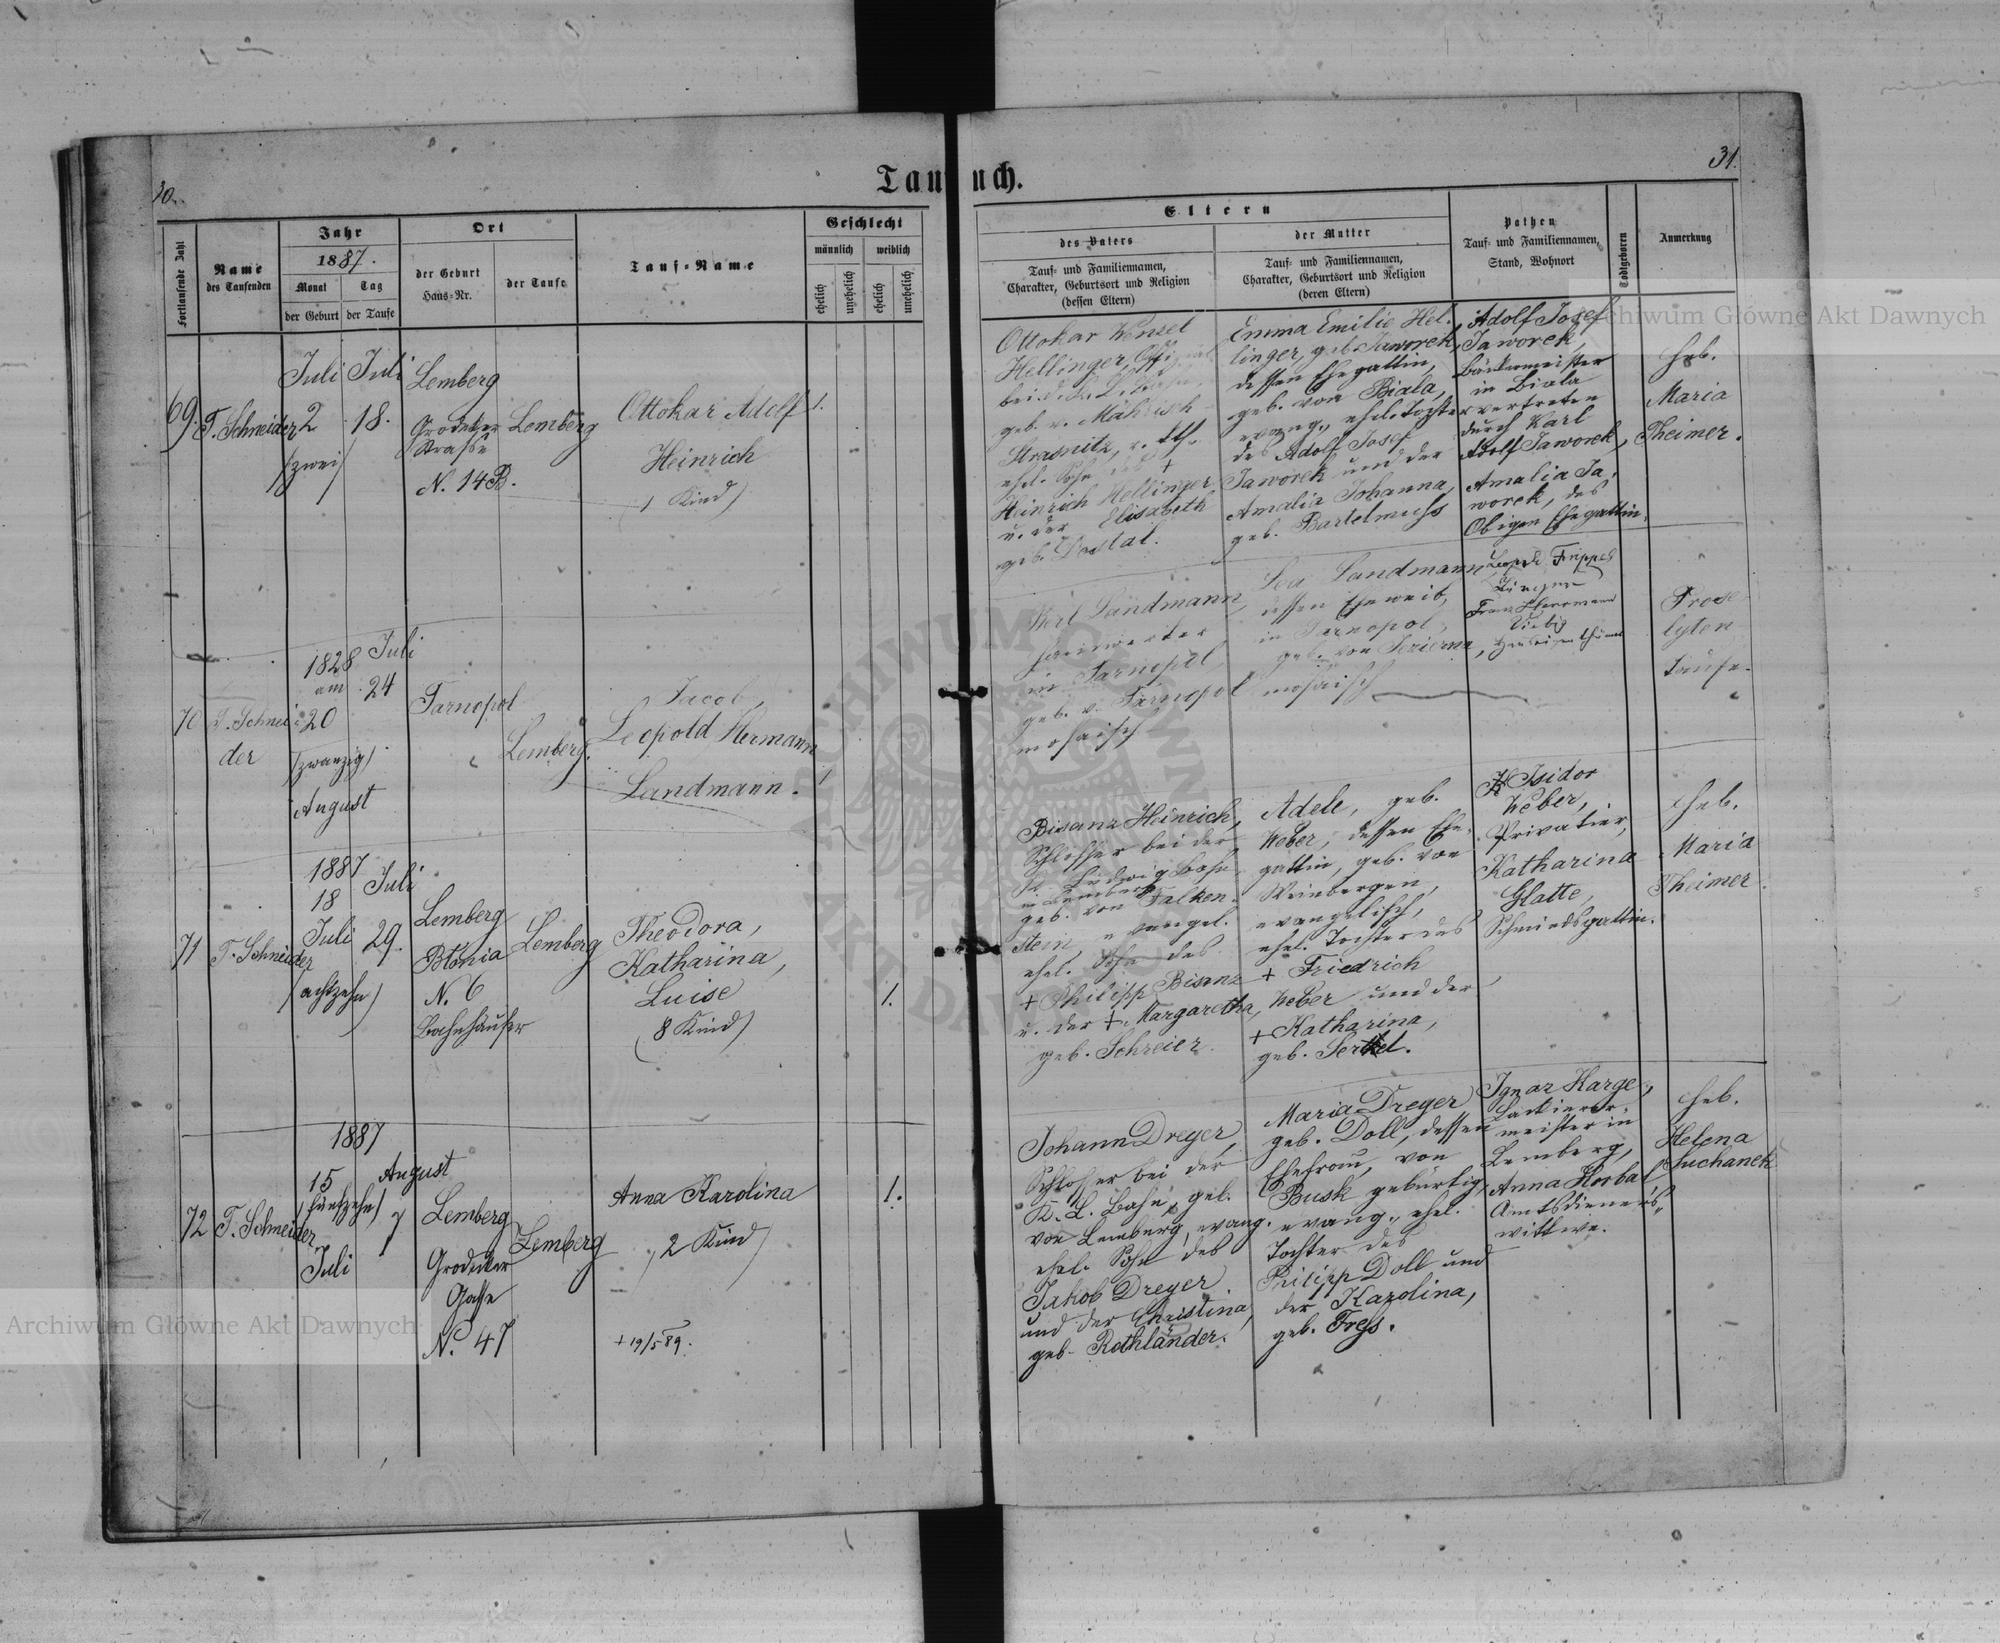 30.
31.
Taufbuch.
Fortlaufende Zahl
Name
des Taufenden
Jahr
1887.
Monat
Tag
der Geburt
der Taufe
Ort
der Geburt
Haus-Nr.
der Taufe
Tauf-Name
Geschlecht
männlich
weiblich
ehelich
unehelich
ehelich
unehelich
Eltern
des Vaters
Tauf- und Familiennamen,
Charakter, Geburtsort und Religion
(dessen Eltern)
der Mutter
Tauf- und Familiennamen,
Charakter, Geburtsort und Religion
(deren Eltern)
Pathen
Tauf- und Familiennamen,
Stand, Wohnort
Todtgeboren
Anmerkung
69.
T. Schneider
Juli
2
/zwei/
Juli
18.
Lemberg
Grodeker
Straße
N. 14B.
Lemberg
Ottokar Adolf
Heinrich
(1 Kind)
1.
Ottokar Wenzel
Hellinger,
geb. v. Mährisch
Strasnitz,
ehel. Sohn des †
Heinrich Hellinger
u. der Elisabeth
geb. Dostal.
Emma Emilie Hel-
linger, geb. Jaworek,
dessen Ehegattin,
geb. von Biala,
evang., ehel. Tochter
des Adolf Josef
Jaworek und der
Amalia Johanna,
geb. Bartelmuss
Adolf Josef
Jaworek,
Bäckermeister
in Biala
vertreten
durch Karl
Adolf Jaworek,
Amalia Ja-
worek, des
Obigen Ehegattin.
Heb.
Maria
Theimer.
70
T. Schnei-
der
1828
am
20
/zwanzig/
August
Juli
24
Tarnopol
Lemberg.
Jacob,
Leopold Hermann
Landmann.
1
Landmann
in Tarnopol
geb. v. Tarnopol
mosaisch
Lea Landmann
dessen Eheweib,
in Tarnopol,
geb. von Jezierna,
mosaisch
Prose-
lyten
taufe.
71
T. Schneider
1887
18
Juli
/achtzehn/
Juli
29.
Lemberg
Blonia
N. 6
Bahnhäuser
Lemberg
Theodora,
Katharina,
Luise
(8 Kind)
1.
Bisanz Heinrich,
Schlosser bei der
K. Ludwig Bahn
in Lemberg
geb. von Falken-
stein, evangel.
ehel. Sohn des
† Philipp Bisanz
u. der † Margaretha,
geb. Schreier.
Adele, geb.
Weber, dessen Ehe-
gattin, geb. von
Weinbergen,
evangelisch,
ehel. Tochter des
† Friedrich
Weber und der
† Katharina,
geb. Serkel.
Isidor
Weber,
Privatier,
Katharina
Glatte,
Schmiedsgattin.
Heb.
Maria
Theimer.
72
T. Schneider
1887
15
/fünfzehn/
Juli
August
7
Lemberg
Grodeker
Gasse
N. 47
Lemberg
Anna Karolina
/2 Kind/
† 19/5 89.
1.
Johann Dreyer,
Schlosser bei der
K. L. Bahn, geb.
von Lemberg, evang.
ehel. Sohn des
Jakob Dreyer
und der Christina,
geb. Rothländer.
Maria Dreyer
geb. Doll, dessen
Ehefrau, von
Busk gebürtig,
evang., ehel.
Tochter des
Philipp Doll und
der Karolina,
geb. Fress.
Ignaz Karge,
Lackierer-
meister in
Lemberg,
Anna Horbal
Amtsdieners-
wittwe.
Heb.
Helena
Suchanek
Archiwum Główne Akt Dawnych
Archiwum Główne Akt Dawnych
ARCHIWUM GŁÓWNE AKT DAWNYCH